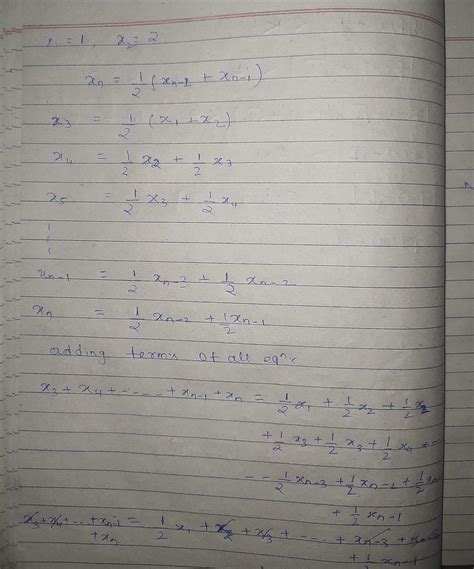 x₁ = 1, x₂ = 2
xₙ = 1/2 (xₙ₋₂ + xₙ₋₁)
x₃ = 1/2 (x₁ + x₂)
x₄ = 1/2 x₂ + 1/2 x₃
x₅ = 1/2 x₃ + 1/2 x₄
xₙ₋₁ = 1/2 xₙ₋₃ + 1/2 xₙ₋₂
xₙ = 1/2 xₙ₋₂ + 1/2 xₙ₋₁
adding terms of all eqⁿs
x₃ + x₄ + ------ + xₙ₋₁ + xₙ = 1/2 x₁ + 1/2 x₂ + 1/2 x₂
+ 1/2 x₃ + 1/2 x₃ + 1/2 x₄
-- 1/2 xₙ₋₃ + 1/2 xₙ₋₂ + 1/2
+ 1/2 xₙ₋₁
x₃ + x₄ + .. + xₙ₋₁ = 1/2 x₁ + x₂ + x₃ + ---- + xₙ₋₃ +
+ xₙ + 1/2 xₙ₋₁